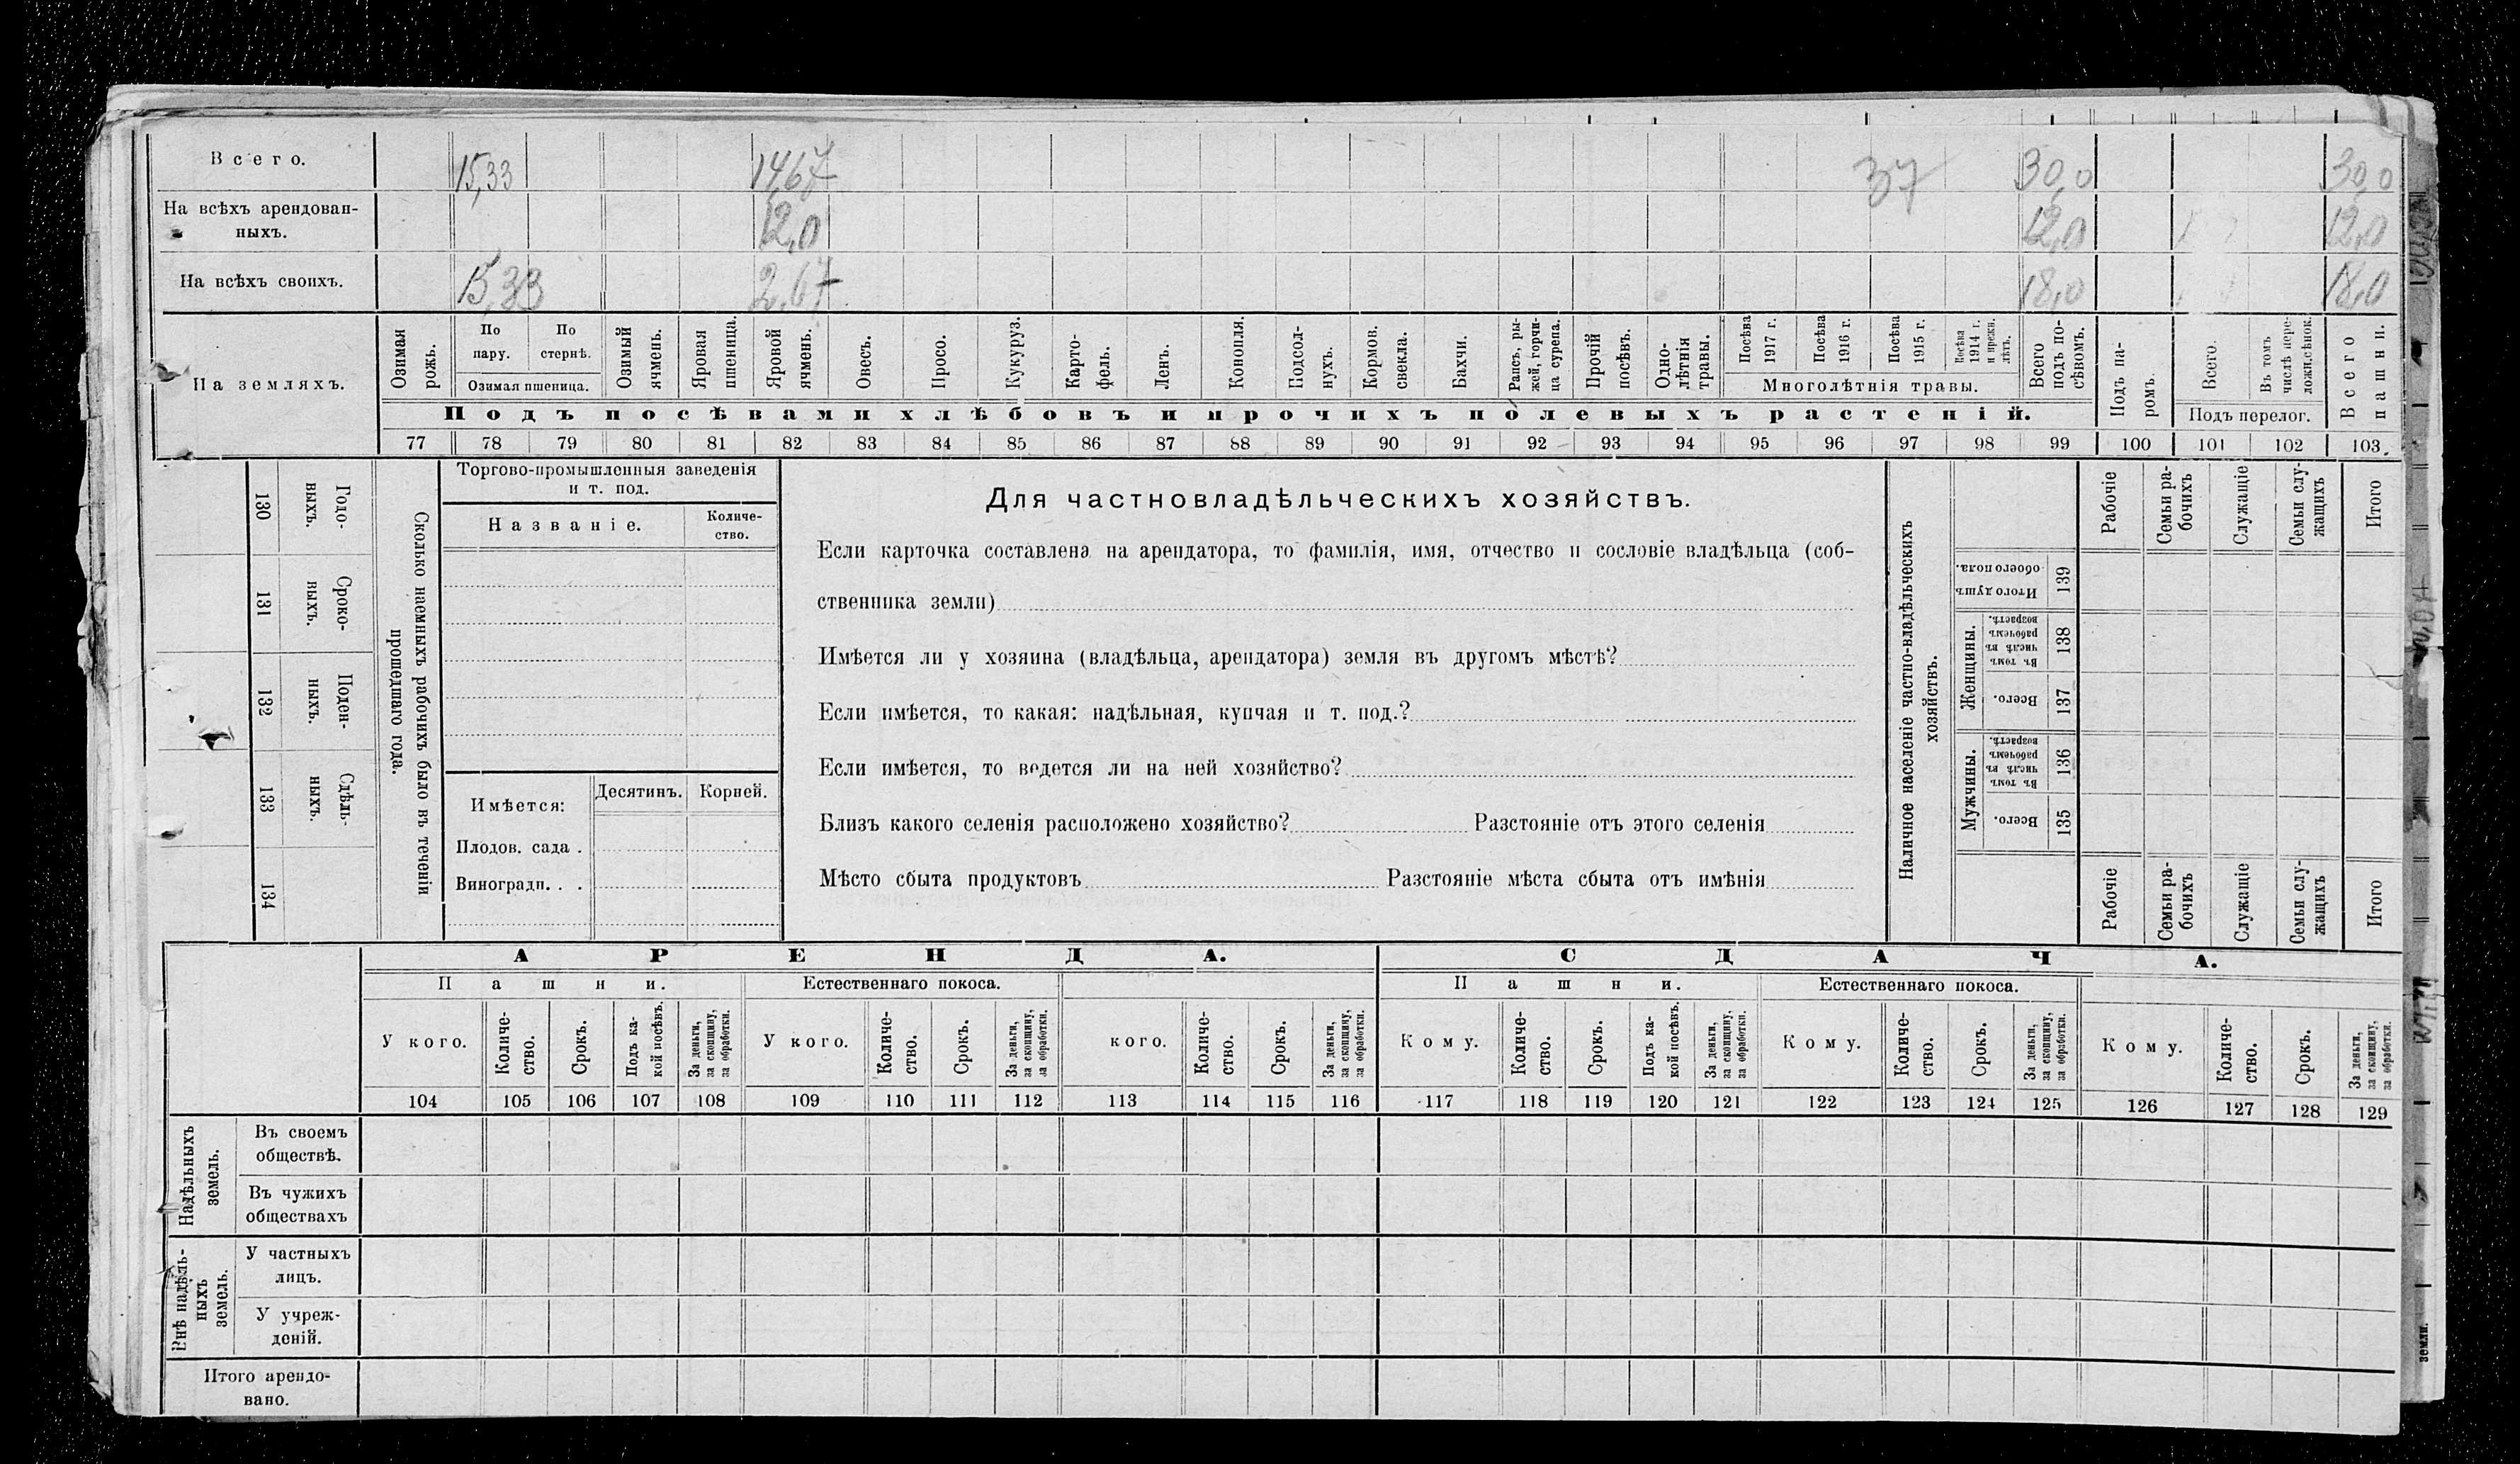 Всего. 15,33 1467 37 30,0 30,0
На всѣхъ арендован-
ныхъ. 12,0 12,0 12,0
На всѣхъ своихъ. 15,33 2,67 18,0 18,0
На земляхъ.
Озимая рожь.
По пару.
По стернѣ.
Озимая пшеница.
Озимый ячмень.
Яровая пшеница.
Яровой ячмень.
Овесъ.
Просо.
Кукуруз.
Карто-
фель.
Ленъ.
Конопля.
Подсол-
нухъ.
Кормов. свекла.
Бахчи.
Рапсъ, ры-
жей, горчи-
ца сурепа.
Прочій посѣвъ.
Одно-
лѣтнія травы.
Посѣва 1917 г.
Посѣва 1916 г.
Посѣва 1915 г.
Посѣва 1914 г. и прежн. лѣтъ.
Многолѣтнія травы.
Всего подъ по-
сѣвомъ.
Подъ посѣвами хлѣбовъ и прочихъ полевыхъ растеній.
Подъ па-
ромъ.
Всего.
Въ томъ числѣ пере-
ложн.сѣнок.
Подъ перелог.
Всего пашни.
77 78 79 80 81 82 83 84 85 86 87 88 89 90 91 92 93 94 95 96 97 98 99 100 101 102 103
130 Годо-
выхъ.
131 Сроко-
ныхъ.
132 Поден-
ныхъ.
133 Сдѣль-
ныхъ.
134
Сколько наемныхъ рабочихъ было въ теченіи
прошедшаго года.
Торгово-промышленныя заведенія
и т. под.
Названіе.
Количе-
ство.
Имѣется:
Десятинъ. Корней.
Плодов. сада .
Виноградн. . .
Для частновладѣльческихъ хозяйствъ.
Если карточка составлена на арендатора, то фамилія, имя, отчество и сословіе владѣльца (соб-
ственника земли)
Имѣется ли у хозяина (владѣльца, арендатора) земля въ другомъ мѣстѣ?
Если имѣется, то какая: надѣльная, купчая и т. под.?
Если имѣется, то ведется ли на ней хозяйство?
Близъ какого селенія расположено хозяйство? Разстояніе отъ этого селенія
Мѣсто сбыта продуктовъ Разстояніе мѣста сбыта отъ имѣнія
Наличное населеніе частно-владѣльческихъ
хозяйствъ.
Рабочіе
Семьи ра-
бочихъ
Служащіе
Семьи слу-
жащихъ
Итого
Итого душъ обоего пола. 139
Женщины.
Въ томъ числѣ въ рабочемъ возрастѣ. 138
Всего. 137
Мужчины.
Въ томъ числѣ въ рабочемъ возрастѣ. 136
Всего. 135
Рабочіе
Семьи ра-
бочихъ
Служащіе
Семьи слу-
жащихъ
Итого
АРЕНДА. СДАЧА.
Пашни. Естественнаго покоса. Пашни. Естественнаго покоса.
У кого.
Количе-
ство.
Срокъ.
Подъ ка-
кой посѣвъ.
За деньги,
за скопщину,
за обработки.
У кого.
Количе-
ство.
Срокъ.
За деньги,
за скопщину,
за обработки.
кого.
Количе-
ство.
Срокъ.
За деньги,
за скопщину,
за обработки.
Кому.
Количе-
ство.
Срокъ.
Подъ ка-
кой посѣвъ.
За деньги,
за скопщину,
за обработки.
Кому.
Количе-
ство.
Срокъ.
За деньги,
за скопщину,
за обработки.
Кому.
Количе-
ство.
Срокъ.
За деньги,
за скопщину,
за обработки.
104 105 106 107 108 109 110 111 112 113 114 115 116 117 118 119 120 121 122 123 124 125 126 127 128 129
Надѣльныхъ
земель.
Въ своемъ
обществѣ.
Въ чужихъ
обществахъ
Внѣ надѣль-
ныхъ
земель.
У частныхъ
лицъ.
У учреж-
деній.
Итого арендо-
вано.
земли.